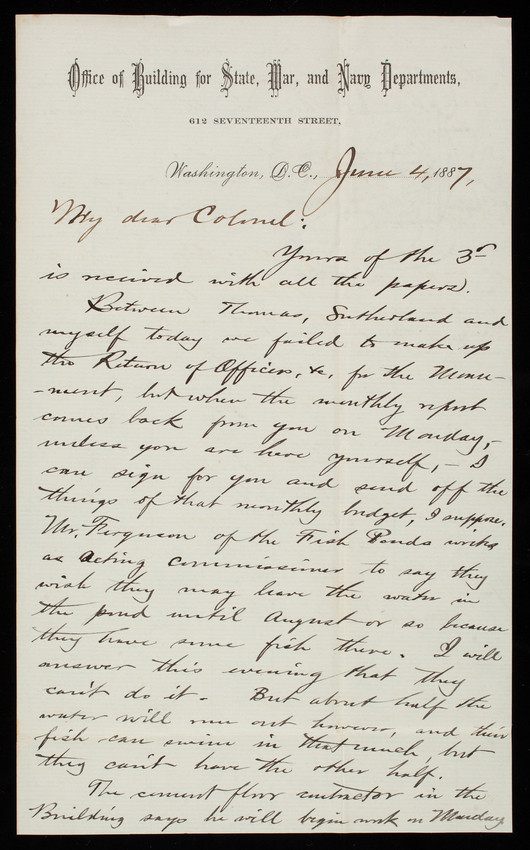 Office of Building for State, War, and Navy Departments,
612 SEVENTEENTH STREET,
Washington, D.C., June 4, 1887,
My dear Colonel:
Yours of the 3d
is received with all the papers.
Between Thomas, Sutherland and
myself today we failed to make up
the Return of Officers, &c, for the Monu-
-ment, but when the monthly report
comes back from you on Monday,-
unless you are here yourself, - I
can sign for you and send off the
things of that monthly budget, I suppose.
Mr. Ferguson of the Fish Ponds writes
as acting commissioner to say they
wish they may leave the water in
the pond until August or so because
they have some fish there. I will
answer this evening that they
can't do it - But about half the
water will run out however, and their
fish can swim in that much, but
they can't have the other half.
The cement floor contractor in the
Building says he will begin work on Monday